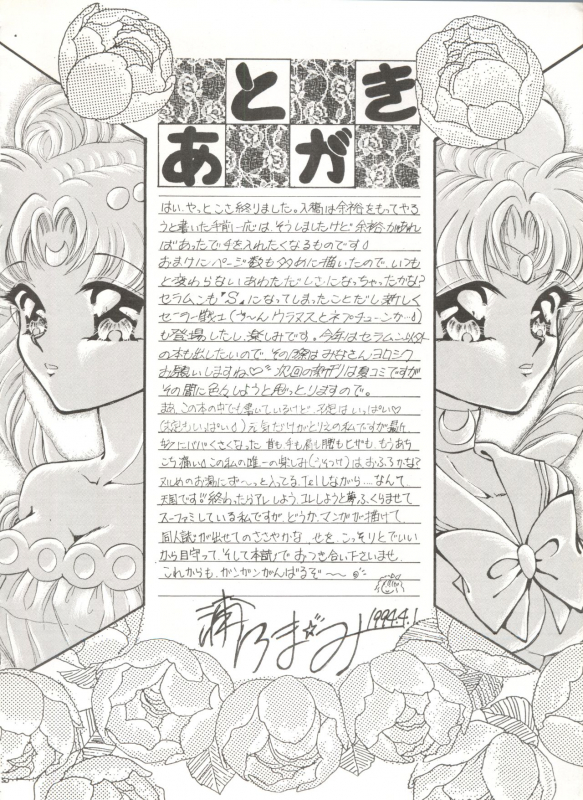 あとがき
はい、やっとこさ終りました。入稿は余裕をもってやろ
うと書いた手前一応はそうしましたけど余裕があれ
ばあったで手を入れたくなるものです
おまけにページ数も多めに描いたので、いつも
と変わらないあわただしさになっちゃったかな?
セラムンも『S』になってしまったことだし新しく
セーラー戦士(う〜んウラヌスとネプチューンか)
も登場したし、楽しみです。今年はセラムン以外
の本も出したいので、その際はみなさんヨロシク
お願いしますね♡ 次回の新刊は夏コミですが
その間に色々しようと思っとりますので。
まあ、この本の中でも書いているけど、はいっぱい♡
元気だけがとりえの私ですが最近、
ババくさくなった 首も手も肩も腰もヒザも、もうあち
こち痛い この私の唯一の楽しみ はおふろかな?
ヌルめのお湯にず〜っと入ってる しながら…なんて、
天国です 終わったらアレしよう、コレしようと夢ふくらませて
スーファミしている私ですが、どうか、マンガが描けて
同人誌が出せてのささやかな、せを、こっそりとでいい
から見守って、そして本誌でおつき合い下さいませ。
これからも、ガンガンがんばるぞ〜〜
1994.4.1.